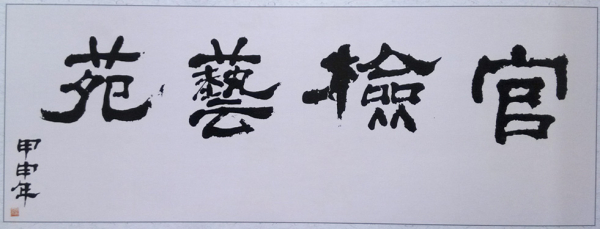 官檢藝苑
甲申年